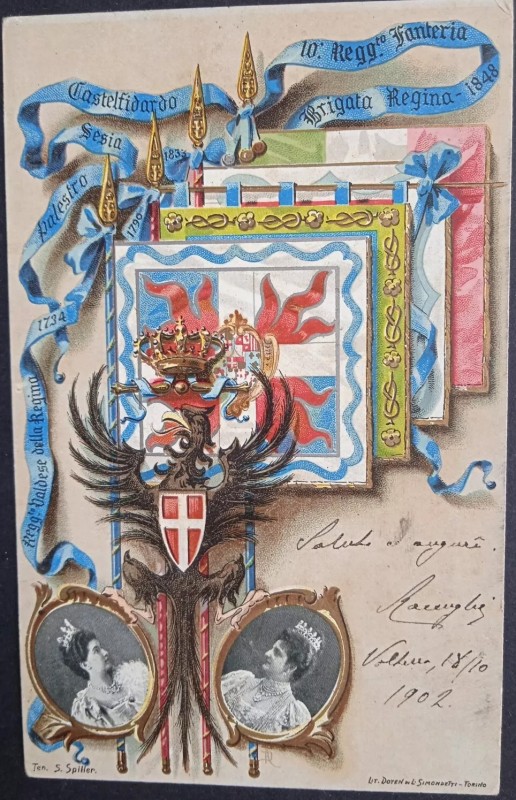 10º Reggto Fanteria
Brigata Regina - 1848
Castelfidardo
Sesia
Palestro
1833
1796
1734
Reggto Valdese della Regina
Saluti e auguri.
18/10
1902.
Ten. S. Spiller.
Lit. Doyen di L. Simondetti - Torino